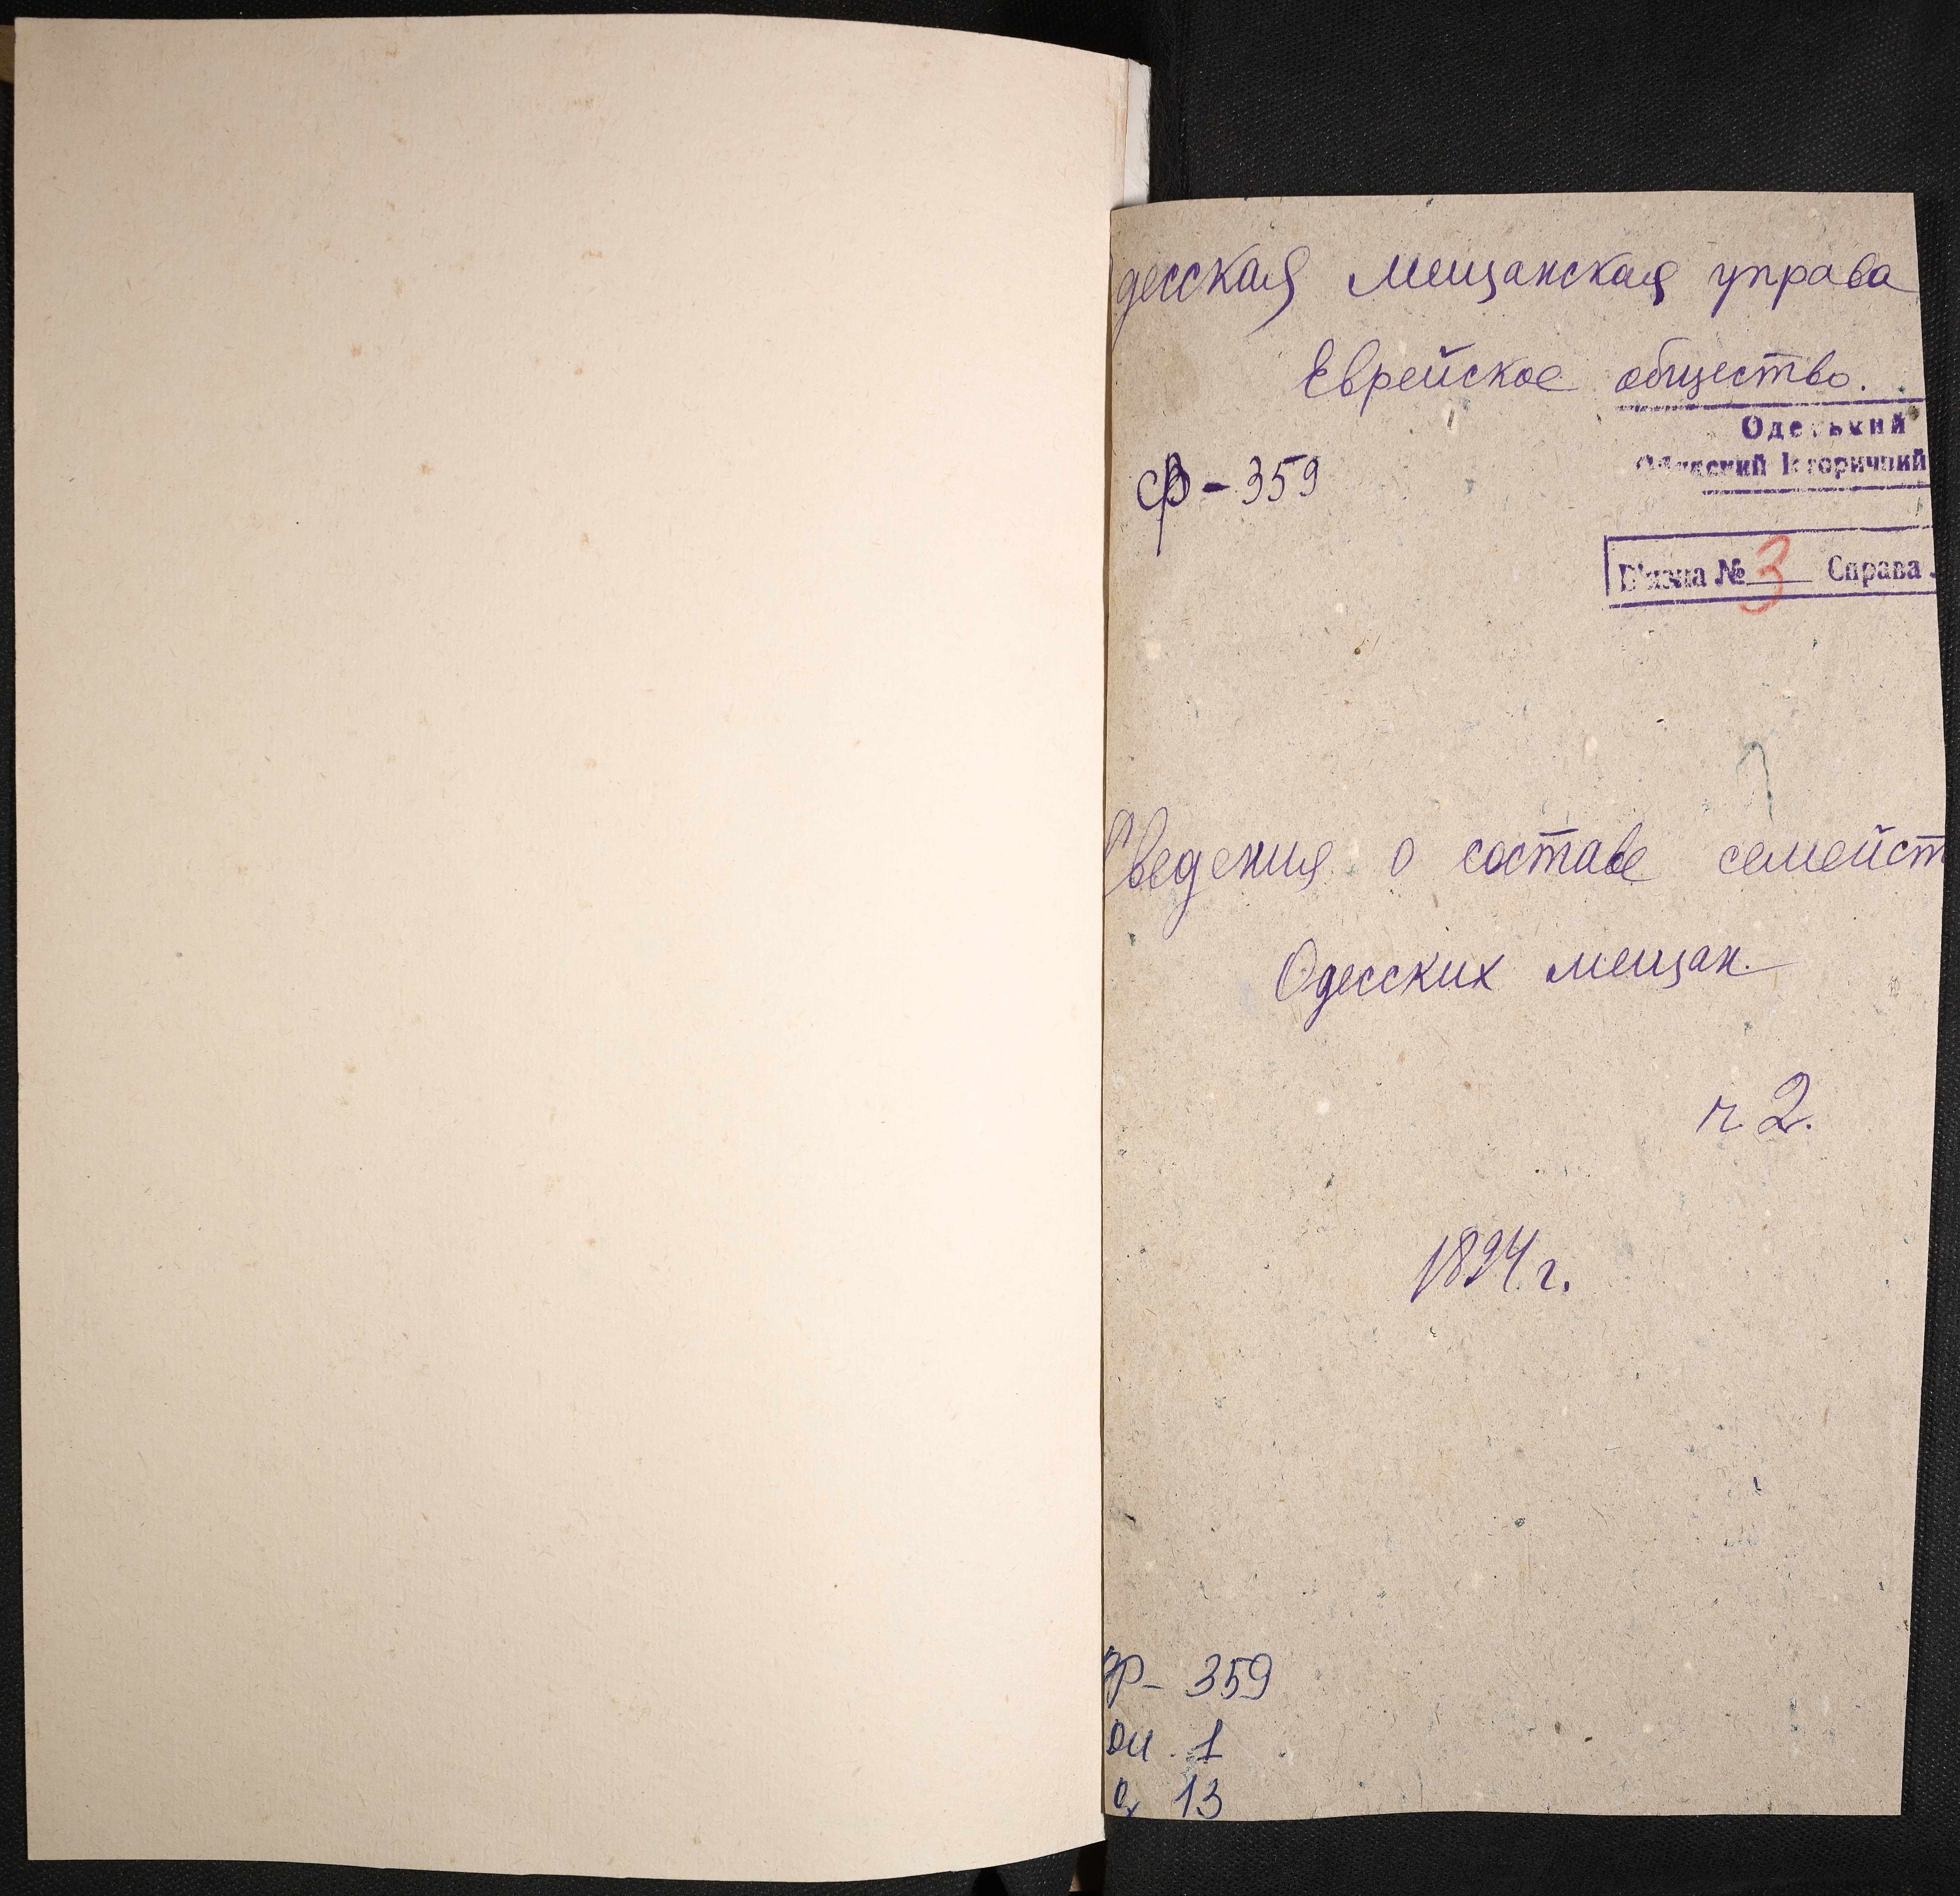 десская мещанская управа
Еврейское общество.
Одеський
Історичний
Ф-359
В'язка № 3 Справа
Сведения о составе семейст
Одесских мещан.
ч. 2.
1894 г.
Ф- 359
оп. 1
13